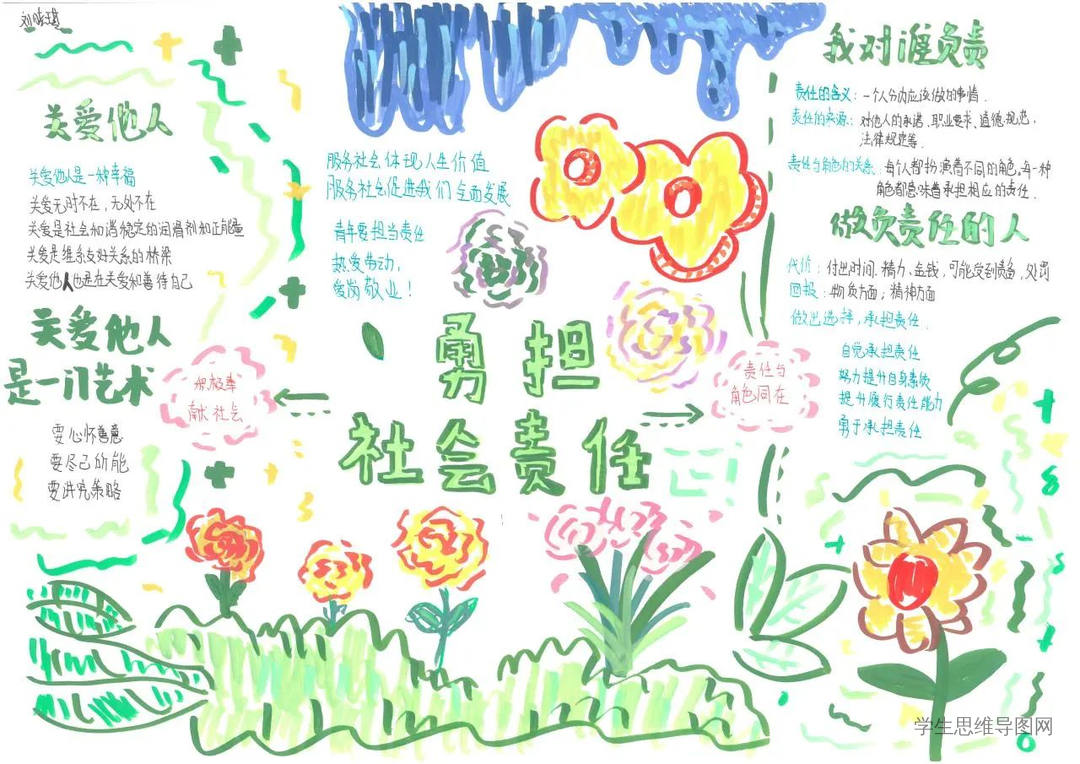 关爱他人
关爱他人是一种幸福
关爱无时不在，无处不在
关爱是社会和谐稳定的润滑剂和正能量
关爱是维系友好关系的桥梁
关爱他人也是在关爱和善待自己
关爱他人
是一门艺术
要心怀善意
要尽己所能
要讲究策略
积极奉
献社会
服务社会体现人生价值
服务社会促进我们全面发展
青年要担当责任
热爱劳动，
爱岗敬业！
勇担
社会责任
责任与
角色同在
我对谁负责
责任的含义：一个人分内应该做的事情.
责任的来源：对他人的承诺、职业要求、道德规范，
法律规定等.
责任与角色的关系：每个人都扮演着不同的角色，每一种
角色都意味着承担相应的责任.
做负责任的人
代价：付出时间、精力、金钱，可能受到责备，处罚
回报：物质方面；精神方面
做出选择，承担责任.
自觉承担责任
努力提升自身素质
提升履行责任能力
勇于承担责任
学生思维导图网